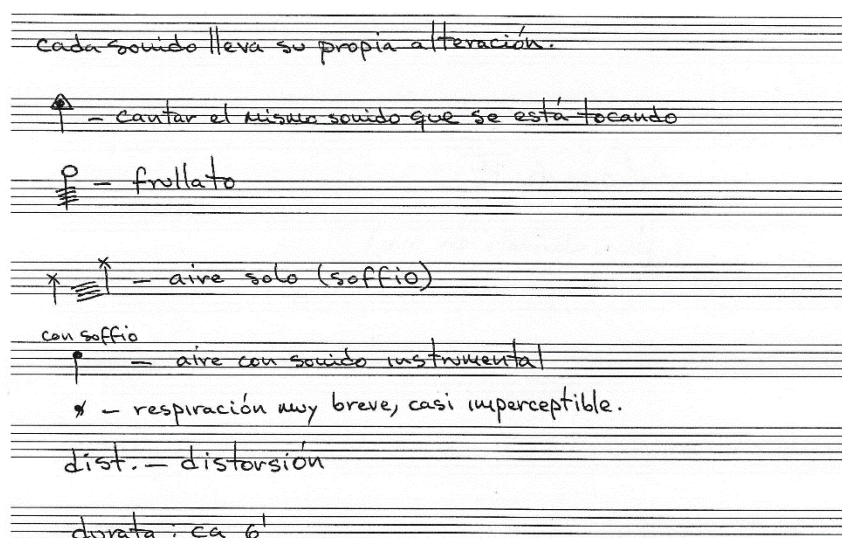 cada sonido lleva su propia alteración.
– cantar el mismo sonido que se está tocando
– frullato
– aire solo (soffio)
con soffio
– aire con sonido instrumental
– respiración muy breve, casi imperceptible.
dist. – distorsión
durata: ca 6'